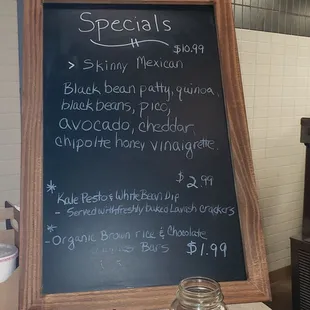 Specials
$10.99
> Skinny Mexican
Black bean patty, quinoa,
black beans, pico,
avocado, cheddar,
chipolte honey vinaigrette.
$2.99
* Kale Pesto & White Bean Dip
- Served with freshly baked Lavish crackers
* -Organic Brown rice & Chocolate
Bars $1.99